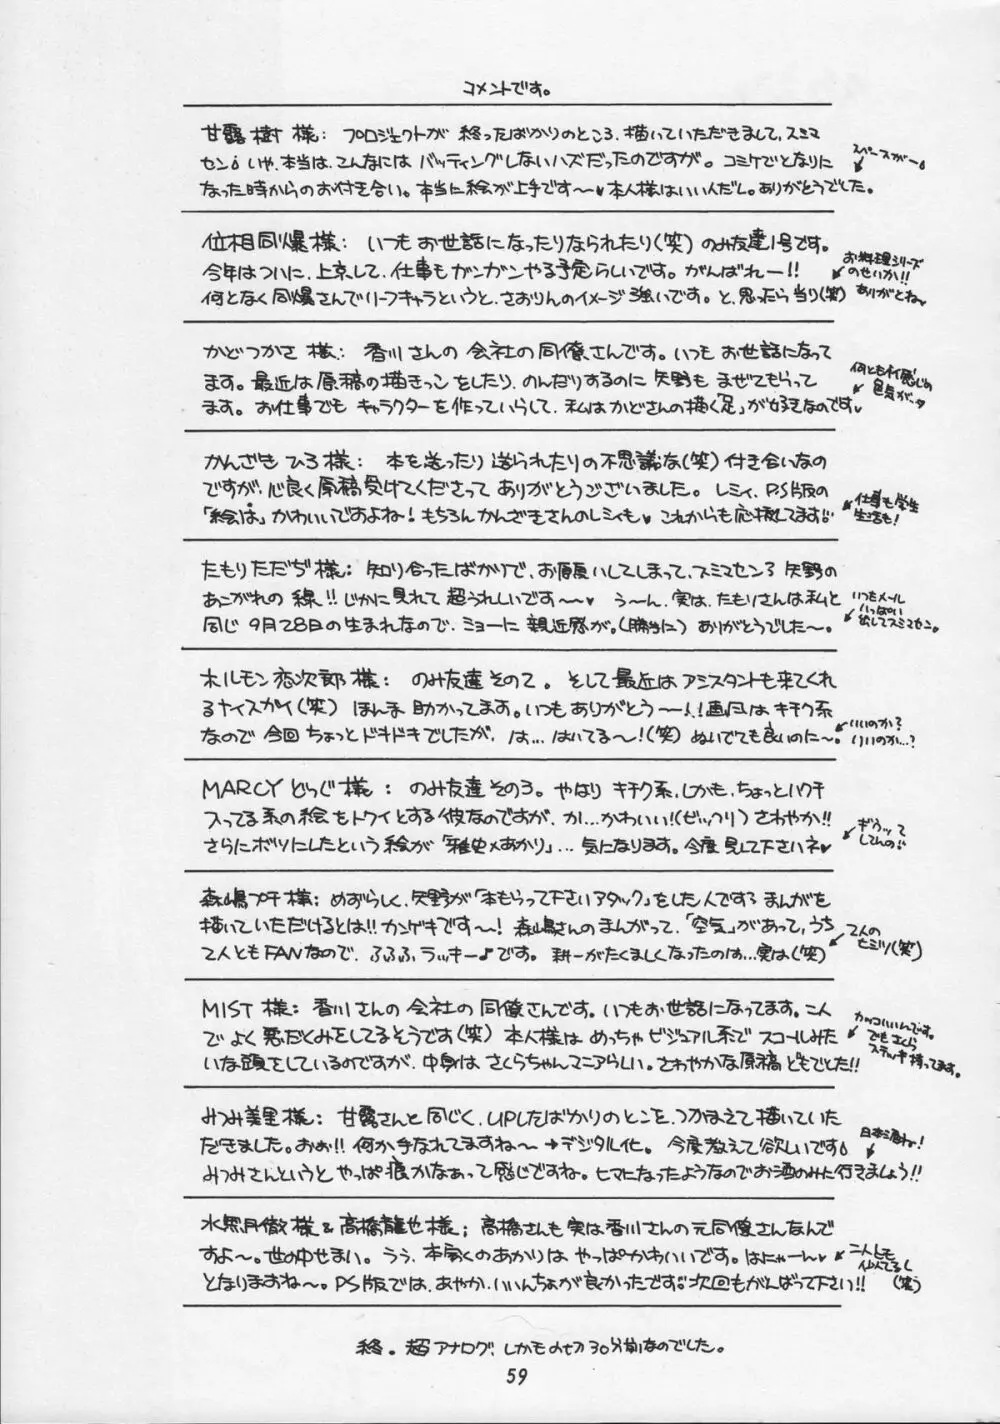 コメントです。
甘露樹 様: プロジェクトが 終ったばかりのところ、描いていただきまして、スミマ
セン。いや、本当は、こんなには バッティングしないハズだったのですが。コミケでとなりに
スペースがー。
なった時からのお付き合い。本当に絵が上手です〜♥ 本人様はいい人だし。ありがとうでした。
位相同爆様: いつも お世話になったりなられたり(笑) のみ友達1号です。
今年はついに、上京して、仕事もガンガンやる予定らしいです。がんばれー!!
何となく同爆さんでリーフキャラというと、さおりんのイメージ強いです。と、思ったら当り(笑)
お料理シリーズ
のせいか!!
ありがとね♥
かどつかさ 様: 香川さんの 会社の同僚さんです。いつも お世話になって
ます。最近は原稿の描きっこをしたり、のんだりするのに 矢野も まぜてもらって
ます。お仕事でも キャラクターを作っていらして、私はかどさんの描く「足」が好きなのです♥
何ともイイ感じの
色気がッタ
かんざきひろ様: 本を送ったり 送られたりの不思議な(笑) 付き合いなの
ですが、心良く原稿受けてくださって ありがとうございました。レミィ、PS版の
「絵は」かわいいですよね! もちろん かんざきさんのレミィも♥ これからも応援してます!!
仕事も学生
生活も!
たもりただぢ様: 知り合ったばかりで、お願いしてしまって、スミマセン 矢野の
あこがれの 線!! じかに見れて 超うれしいです〜〜♥ う〜ん、実は、たもりさんは私と
同じ 9月28日の生まれなので、ミョーに 親近感が。(勝手に) ありがとうでした〜。
いつもメール
いっぱい
出してスミマセン。
ホルモン恋次郎 様: のみ友達 その2。そして最近は アシスタントも来てくれ
るナイスガイ(笑) ほんま 助かってます。いつもありがとう〜!! 画風は キチク系
なので 今回 ちょっとドキドキでしたが、は... はいてる〜!(笑) ぬいでても良いのに〜。
いいのか?
いいのか...?
MARCYどっぐ様 : のみ友達 その3。やはり キチク系、しかも、ちょっとハクチ
入ってる系の絵をトクイとする彼なのですが、か...かわいい!(ビックリ) さわやか!!
さらにボツにしたという絵が「雅史×あかり」... 気になります。今度 見して下さいネ♥
ギうッて
してんの!!
森嶋プチ様: めずらしく、矢野が「本もらって下さいアタック」をした人です まんがを
描いていただけるとは!! カンゲキです〜! 森嶋さんのまんがって、「空気」があって、うち
2人ともFANなので、ふふふ ラッキー♪です。 耕一がたくましくなったのは...実は(笑)
2人の
ヒミツ(笑)
MIST 様: 香川さんの 会社の 同僚さんです。いつもお世話になってます。二人
で よく 悪だくみをしてるそうです(笑) 本人様は めっちゃ ビジュアル系で スコールみた
いな頭をしているのですが、中身は さくらちゃんマニアらしい。さわやかな原稿 どもでした!!
カッコいいんです。
でもさくら
ステッキ 持ってます。
みつみ美里 様: 甘露さんと 同じく、UPしたばかりのとこを、つかまえて 描いていた
だきました。おぉ!! 何か手なれてますね〜 →デジタル化。 今度教えて欲しいです。
みつみさんというと やっぱ痕かなぁって 感じですね。ヒマになったようなのでお酒のみに行きましょう!!
日本酒ね!
水無月徹 様 & 高橋龍也 様; 高橋さんも 実は香川さんの 元同僚さんなんで
すよ〜。世の中せまい。うぅ、本家のあかりは やっぱかわいいです。はにゃーん♥
となりますね〜。PS版では、あやか、いいんちょが良かったです。次回もがんばって下さい!!
二人とも
似てるし
(笑)
終。超アナログ、しかも〆切30分前なのでした。
59